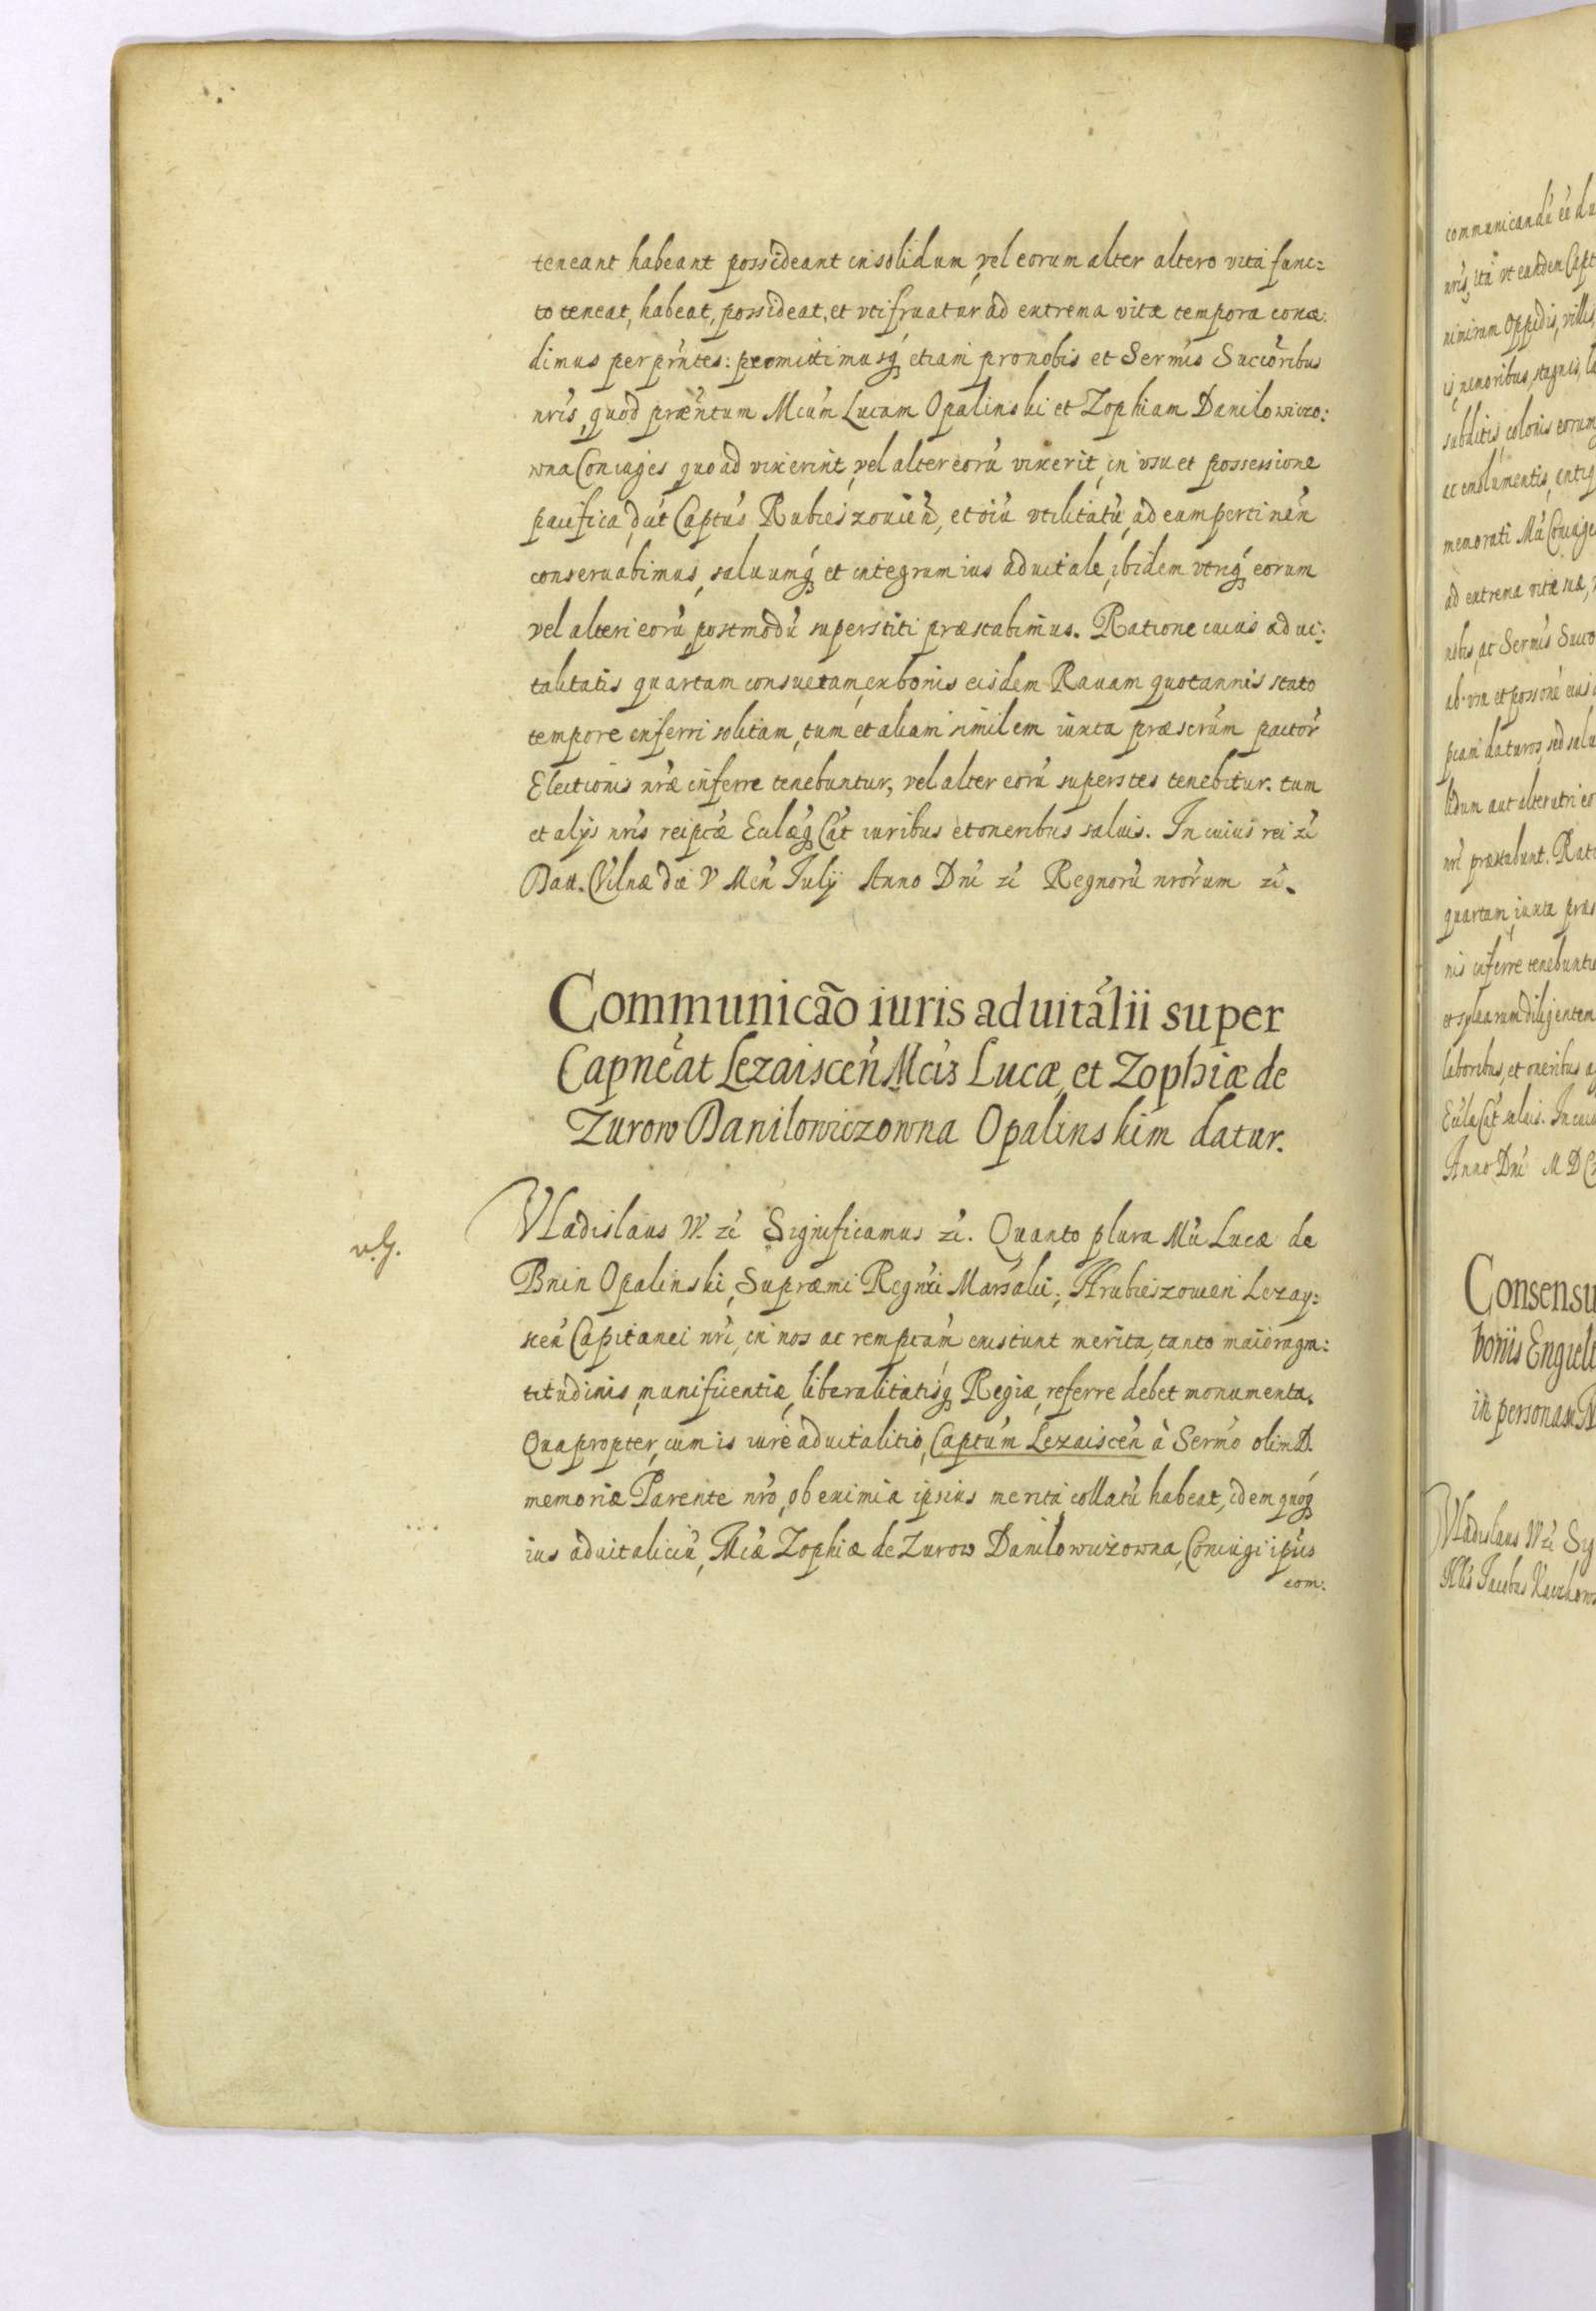 teneant habeant possideant in solidum, vel eorum alter altero vita func:
to teneat, habeat, possideat, et vtifruatur ad extrema vitæ tempora conce:
dimus per pñtes: promittimusq́ etiam pro nobis et Sermis Succoribus
nris, quod præntum Mcum Lucam Opalinski et Zophiam Danilowiczo:
wna Coniuges quo ad vixerint, vel alter eorũ vixerit, in vsu et possessione
pacifica dct Captus Rubieszouien, et oiu vtilitatũ, ad eam pertinen
conseruabimus, saluumq́ et integrum ius aduitale, ibidem vtriq́ eorum
vel alteri eorũ, postmodũ superstiti præstabimus. Ratione cuius adui:
talitatis quartam consuetam, ex bonis eisdem Rauam quotannis stato
tempore inferri solitam, tum et aliam similem iuxta præscrum pactor
Electionis nræ inferre tenebuntur, vel alter eorũ superstes tenebitur. tum
et alijs nris reipcæ Ecclæq́ Cat iuribus et oneribus saluis. In cuius rei zc
Datt. Vilnæ die V Men Julij Anno Dni zc Regnorũ nrorum zc.
Communicão iuris aduitalii super
Capneat Lezaiscen Mcis Lucæ et Zophiæ de
Zurow Danilowiczowna Opalinskim datur.
v. G.
Vladislaus IV. zc Significamus zc. Quanto plura Mci Lucæ de
Bnin Opalinski, Supræmi Regni Marsalci, Hrubieszouien Lezay:
scen Capitanei nri, in nos ac rempcam existunt merita, tanto maiora gra:
titudinis, munificentiæ, liberalitatisq́ Regiæ, referre debet monumenta.
Quapropter, cum is iure aduitalitio, Captum Lezaiscen à Sermo olim D.
memoriæ Parente nro, ob eximia ipsius merita collatũ habeat, idem quoq́
ius aduitaliciũ, Mcæ Zophiæ de Zurow Danilowiczowna, Coniugi ipius
com:
communicandũ eé du
nris, ita vt eandem Capt
nimirum Oppidis, villis,
is, nemoribus, stagnis, la
subditis colonis eorum
ac emolumentis, antiq
memorati Mci Coniuge
ad extrema vitæ suæ,
nobis, ac Sermis Succo
ab vsu et possone eius
piam daturos, sed salu
lidum aut alterutri eo
nri præstabunt. Rati
quartam, iuxta præs
nis inferre tenebuntu
et syluarum diligentem
laboribus, et oneribus
Eccla Cat saluis. In cuiu
Anno Dni M DC
Consensu
bonis Engiel
in personam
Vladislaus IV zc Sig
Nblis Jacobus